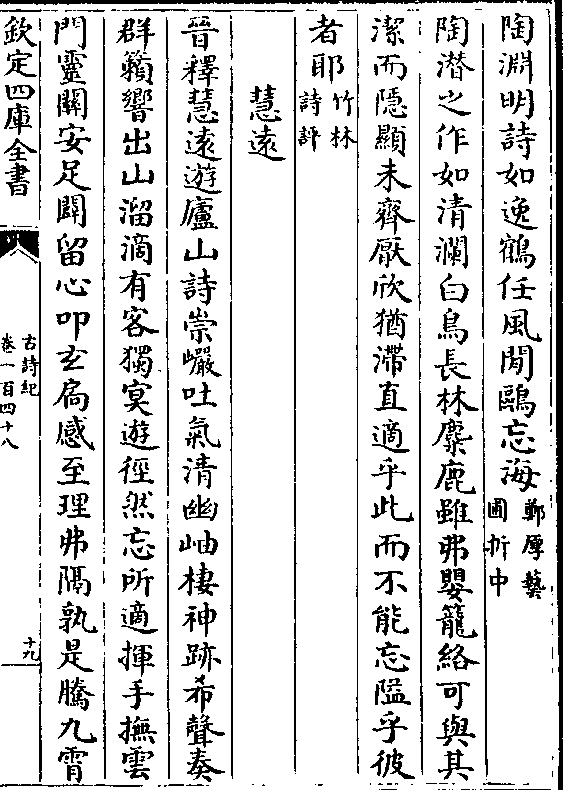 陶淵明詩如逸鶴任風閒鷗忘海鄭厚藝圃折中
陶潛之作如清瀾白鳥長林麋鹿雖弗嬰籠絡可與其
潔而隱顯未齊厭欣猶滯直適乎此而不能忘隘乎彼
者耶竹林詩評
慧遠
晉釋慧遠遊廬山詩崇巖吐氣清幽岫棲神跡希聲奏
群籟響出山溜滴有客獨冥遊徑然忘所適揮手撫雲
門靈關安足闢留心叩玄扃感至理弗隔孰是騰九霄
欽定四庫全書
古詩紀
卷一百四十八
十九